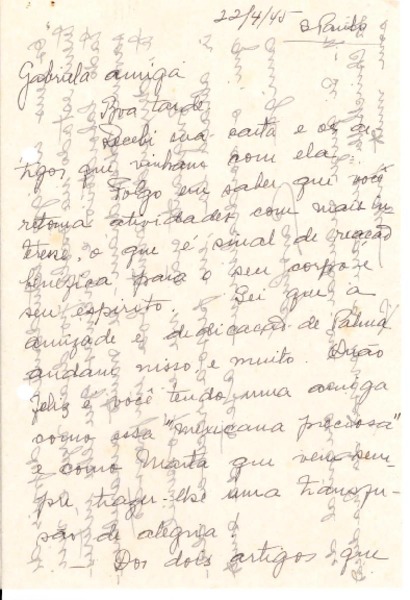 22/4/45 S. Paulo
Gabriela amiga
Boa tarde
Recebi sua carta e os ar-
tigos que vinham com ela.
Folgo em saber que você
retoma atividades com mais in-
terese, o que é sinal de reacão
benefica para o seu corpo e
seu espirito. Sei que a
amizade e dedicacão de Palma
andam nisso e muito. Quão
feliz é você tendo uma amiga
como essa "mexicana preciosa"
e como Marta que vem sem-
pre, trazer-lhe uma transfu-
são de alegria!
— Dos dois artigos que